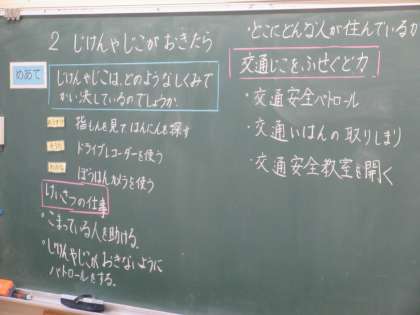 2 じけんやじこがおきたら
めあて
じけんやじこは、どのようなしくみで
かい決しているのでしょうか。
指もんを見てはんにんを探す
ドライブレコーダーを使う
ぼうはんカメラを使う
けいさつの仕事
・こまっている人を助ける。
・じけんやじこがおきないように
パトロールをする。
・どこにどんな人が住んでいるか
交通じこをふせぐど力
・交通安全パトロール
・交通いはんの取りしまり
・交通安全教室を開く